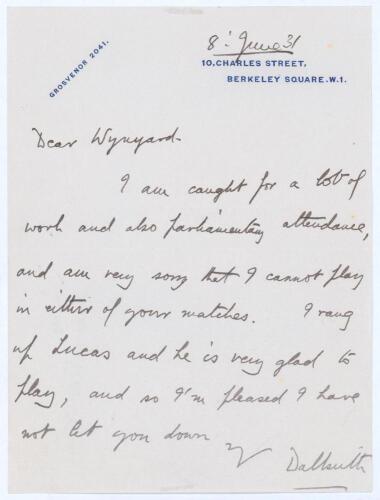 GROSVENOR 2041.
8: June 31
10, CHARLES STREET,
BERKELEY SQUARE. W.1.
Dear Wynyard-
I am caught for a lot of
work and also parliamentary attendance,
and am very sorry that I cannot play
in either of your matches. I rang
up Lucas and he is very glad to
play, and so I'm pleased I have
not let you down
Dalkeith